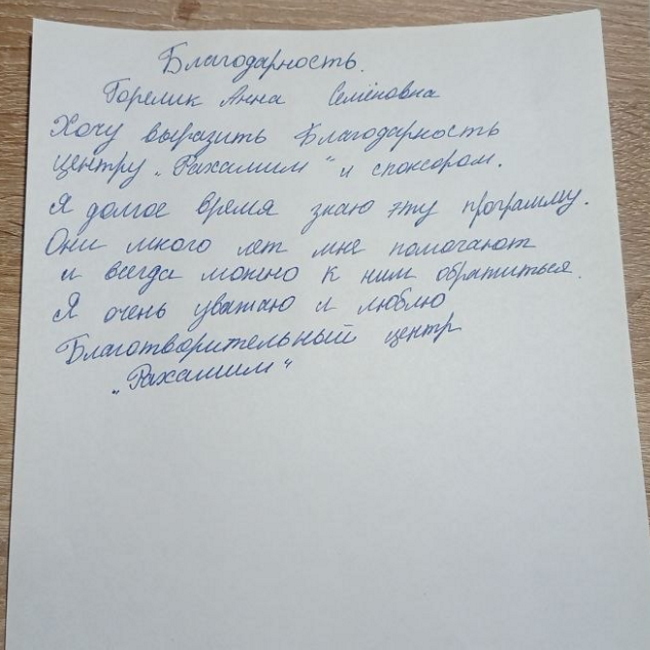 Благодарность.
Горелик Анна Семёновна
Хочу выразить Благодарность
центру „Рахамим" и спонсором.
Я долгое время знаю эту программу.
Они много лет мне помогают
и всегда можно к ним обратиться.
Я очень уважаю и люблю
Благотворительный центр
„Рахамим"